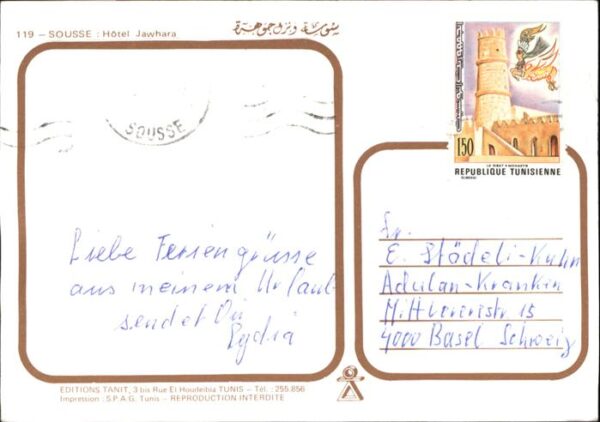 119 – SOUSSE : Hôtel Jawhara
سوسة ونزل جوهرة
SOUSSE
150
REPUBLIQUE TUNISIENNE
Liebe Feriengrüsse
aus meinem Urlaub
sendet Dir
Lydia
E. Städeli-Kuhn
4000 Basel Schweiz
EDITIONS TANIT, 3 bis Rue El Houdeibia TUNIS – Tél. : 255.856
Impression : S.P.A.G. Tunis – REPRODUCTION INTERDITE